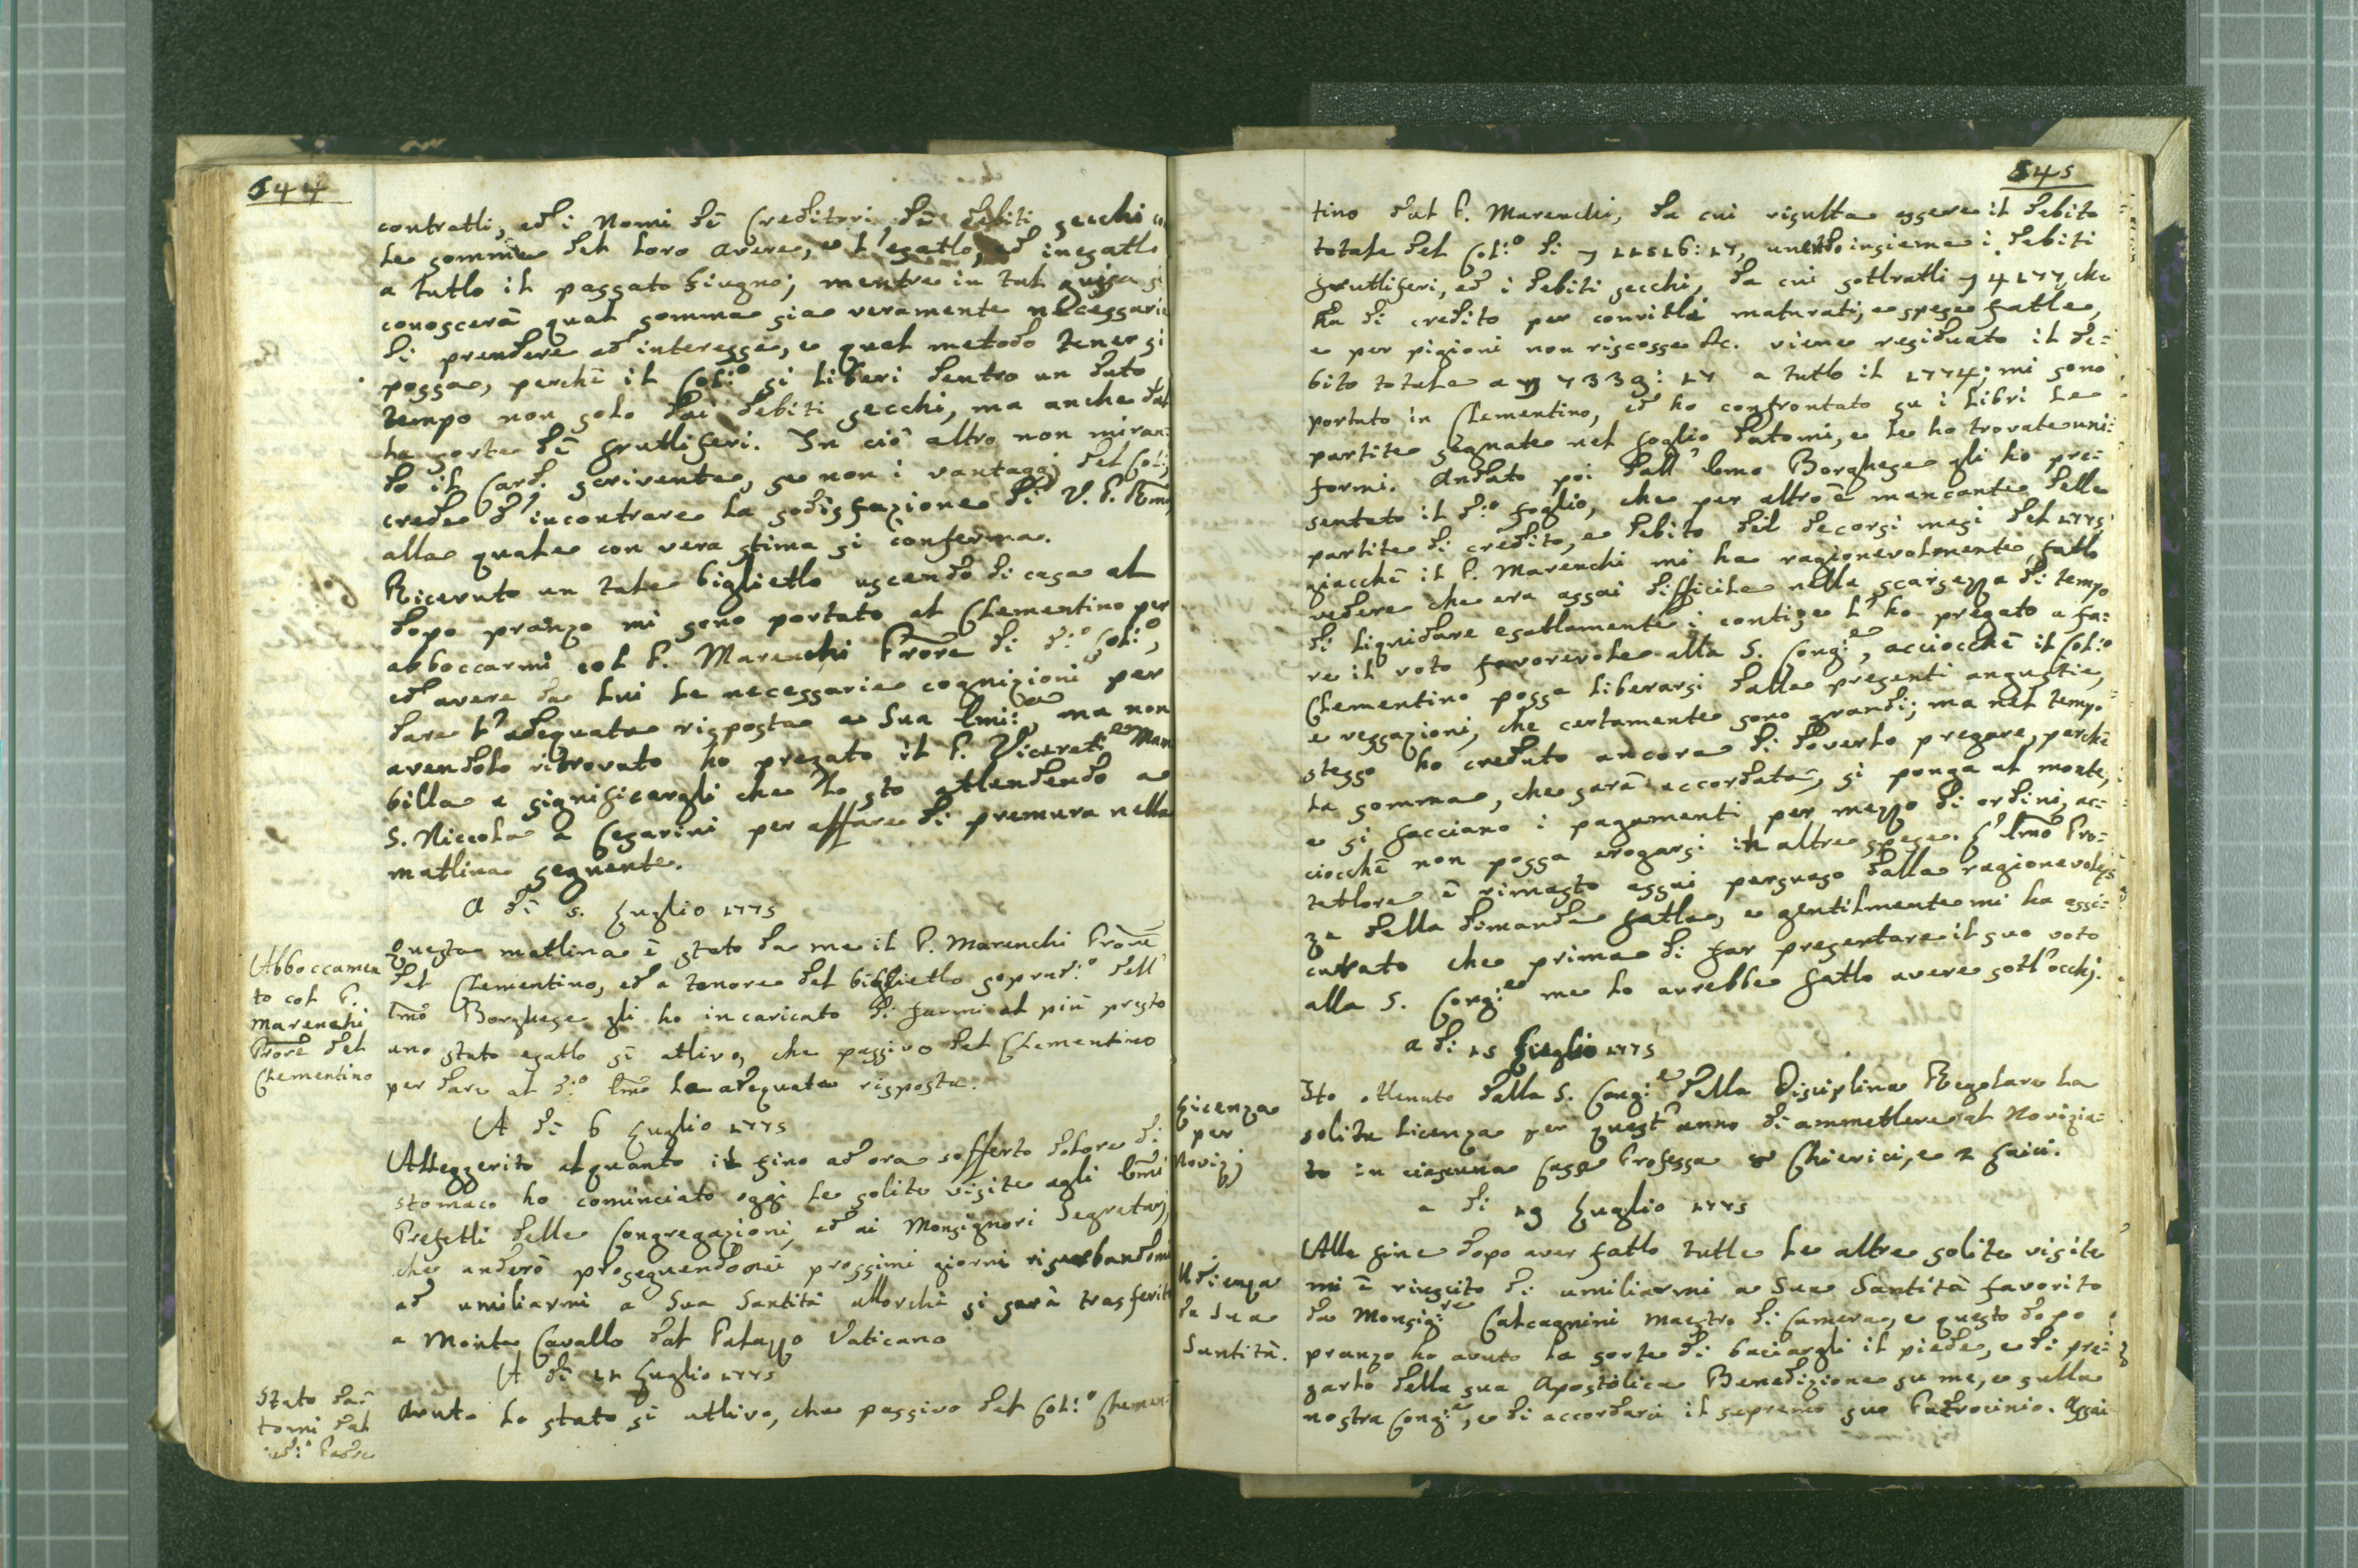 644
contratti, ed i Nomi dē Creditori dē debiti secchi
le somme del loro avere, e l'esatto, ed inesatto
a tutto il passato Giugno; mentre in tal guisa si
conoscerà qual somma sia veramente necessaria
di prendere ad interesse, e qual metodo tener si
possa, perchè il Col:º si liberi dentro un dato
tempo non solo dai debiti secchi, ma anche dal
la sorte dē fruttiferi. In ciò altro non miran:
do il Card. scrivente, se non i vantaggi del Col:º,
crede d'incontrare la sodisfazione di V. P. Rm̄a,
alla quale con vera stima si conferma.
Ricevuto un tale biglietto uscendo di casa al
dopo pranzo mi sono portato al Clementino per
abboccarmi col P. Marenchi Prōre di d:º Col:º,
ed avere da lui le necessarie cognizioni per
dare l'adequata risposta a Sua Emi:za, ma non
avendolo ritrovato ho pregato il P. Vicerett:e Man
billa a significargli che lo sto attendendo a
S. Niccola a Cesarini per affare di premura nella
mattina seguente.
A dì 5. Luglio 1775
Abboccamen
to col P.
Marenchi
Prōre del
Clementino
Questa mattina è stato da me il P. Marenchi Prōre
del Clementino, ed a tenore del biglietto soprad:º dell'
Em̄o Borghese gli ho incaricato di farmi al più presto
uno stato esatto sì attivo, che passivo del Clementino
per dare al d:º Em̄o la adequata risposta.
A dì 6 Luglio 1775
Alleggerito alquanto il fino ad ora sofferto dolore di
stomaco ho cominciato oggi le solite visite agli Em̄i
Prefetti delle Congregazioni, ed ai Monsignori Segretarj,
che anderò proseguendo nei prossimi giorni riserbandomi
ad umiliarmi a Sua Santità allorchè si sarà trasferito
a Monte Cavallo dal Palazzo Vaticano
A dì 11 Luglio 1775
Stato da:
tomi dal
sud:º Padre
Avuto lo stato sì attivo, che passivo del Col:º Clemen:
645
tino dal P. Marenchi, da cui risulta essere il debito
totale del Col:º di 11516:17, unendo insieme i debiti
fruttiferi, ed i debiti secchi, da cui sottratti 4177 che
ha di credito per convitti maturati, e spese fatte,
e per pigioni non riscosse &c. viene residuato il de:
bito totale a 7339:17 a tutto il 1774; mi sono
portato in Clementino, ed ho confrontato su i libri le
partite segnate nel foglio datomi, e le ho trovate uni:
formi. Andato poi dall'Em̄o Borghese gli ho pre:
sentato il d:º foglio, che per altro è mancante delle
partite di credito, e debito del decorsi mesi del 1775,
giacchè il P. Marenchi mi ha ragionevolmente fatto
vedere che era assai difficile nella scarsezza di tempo
di liquidare esattamente i conti; e l'ho pregato a fa:
re il voto favorevole alla S. Cong:e, acciocchè il Col:º
Clementino possa liberarsi dalle presenti angustie,
e vessazioni, che certamente sono grandi; ma nel tempo
stesso ho creduto ancora di doverlo pregare, perchè
la somma, che sarà accordata, si ponga al monte,
e si facciano i pagamenti per mezzo di ordini, ac:
ciocchè non possa erogarsi in altre spese. L'Em̄o Pro:
tettore è rimasto assai persuaso dalla ragionevolez
za della dimanda fatta, e gentilmente mi ha assi:
curato che prima di far presentare il suo voto
alla S. Cong:e me lo avrebbe fatto avere sott'occhj.
a dì 15 Luglio 1775
Licenza
per
Novizj
Ho ottenuto dalla S. Cong:e della Disciplina Regolare la
solita licenza per quest'anno di ammettere al Novizia:
to in ciascuna Casa Professa Chierici, e 2 Laici.
a dì 19 Luglio 1775
Udienza
da Sua
Santità.
Alla fine dopo aver fatto tutte le altre solite visite
mi è riuscito di umiliarmi a Sua Santità favorito
da Monsig:re Calcagnini Maestro di Camera, e questo dopo
pranzo ho avuto la sorte di baciargli il piede, e di pre:
garlo della sua Apostolica Benedizione su me, e sulla
nostra Cong:e, e di accordarci il supremo suo Patrocinio. Assai